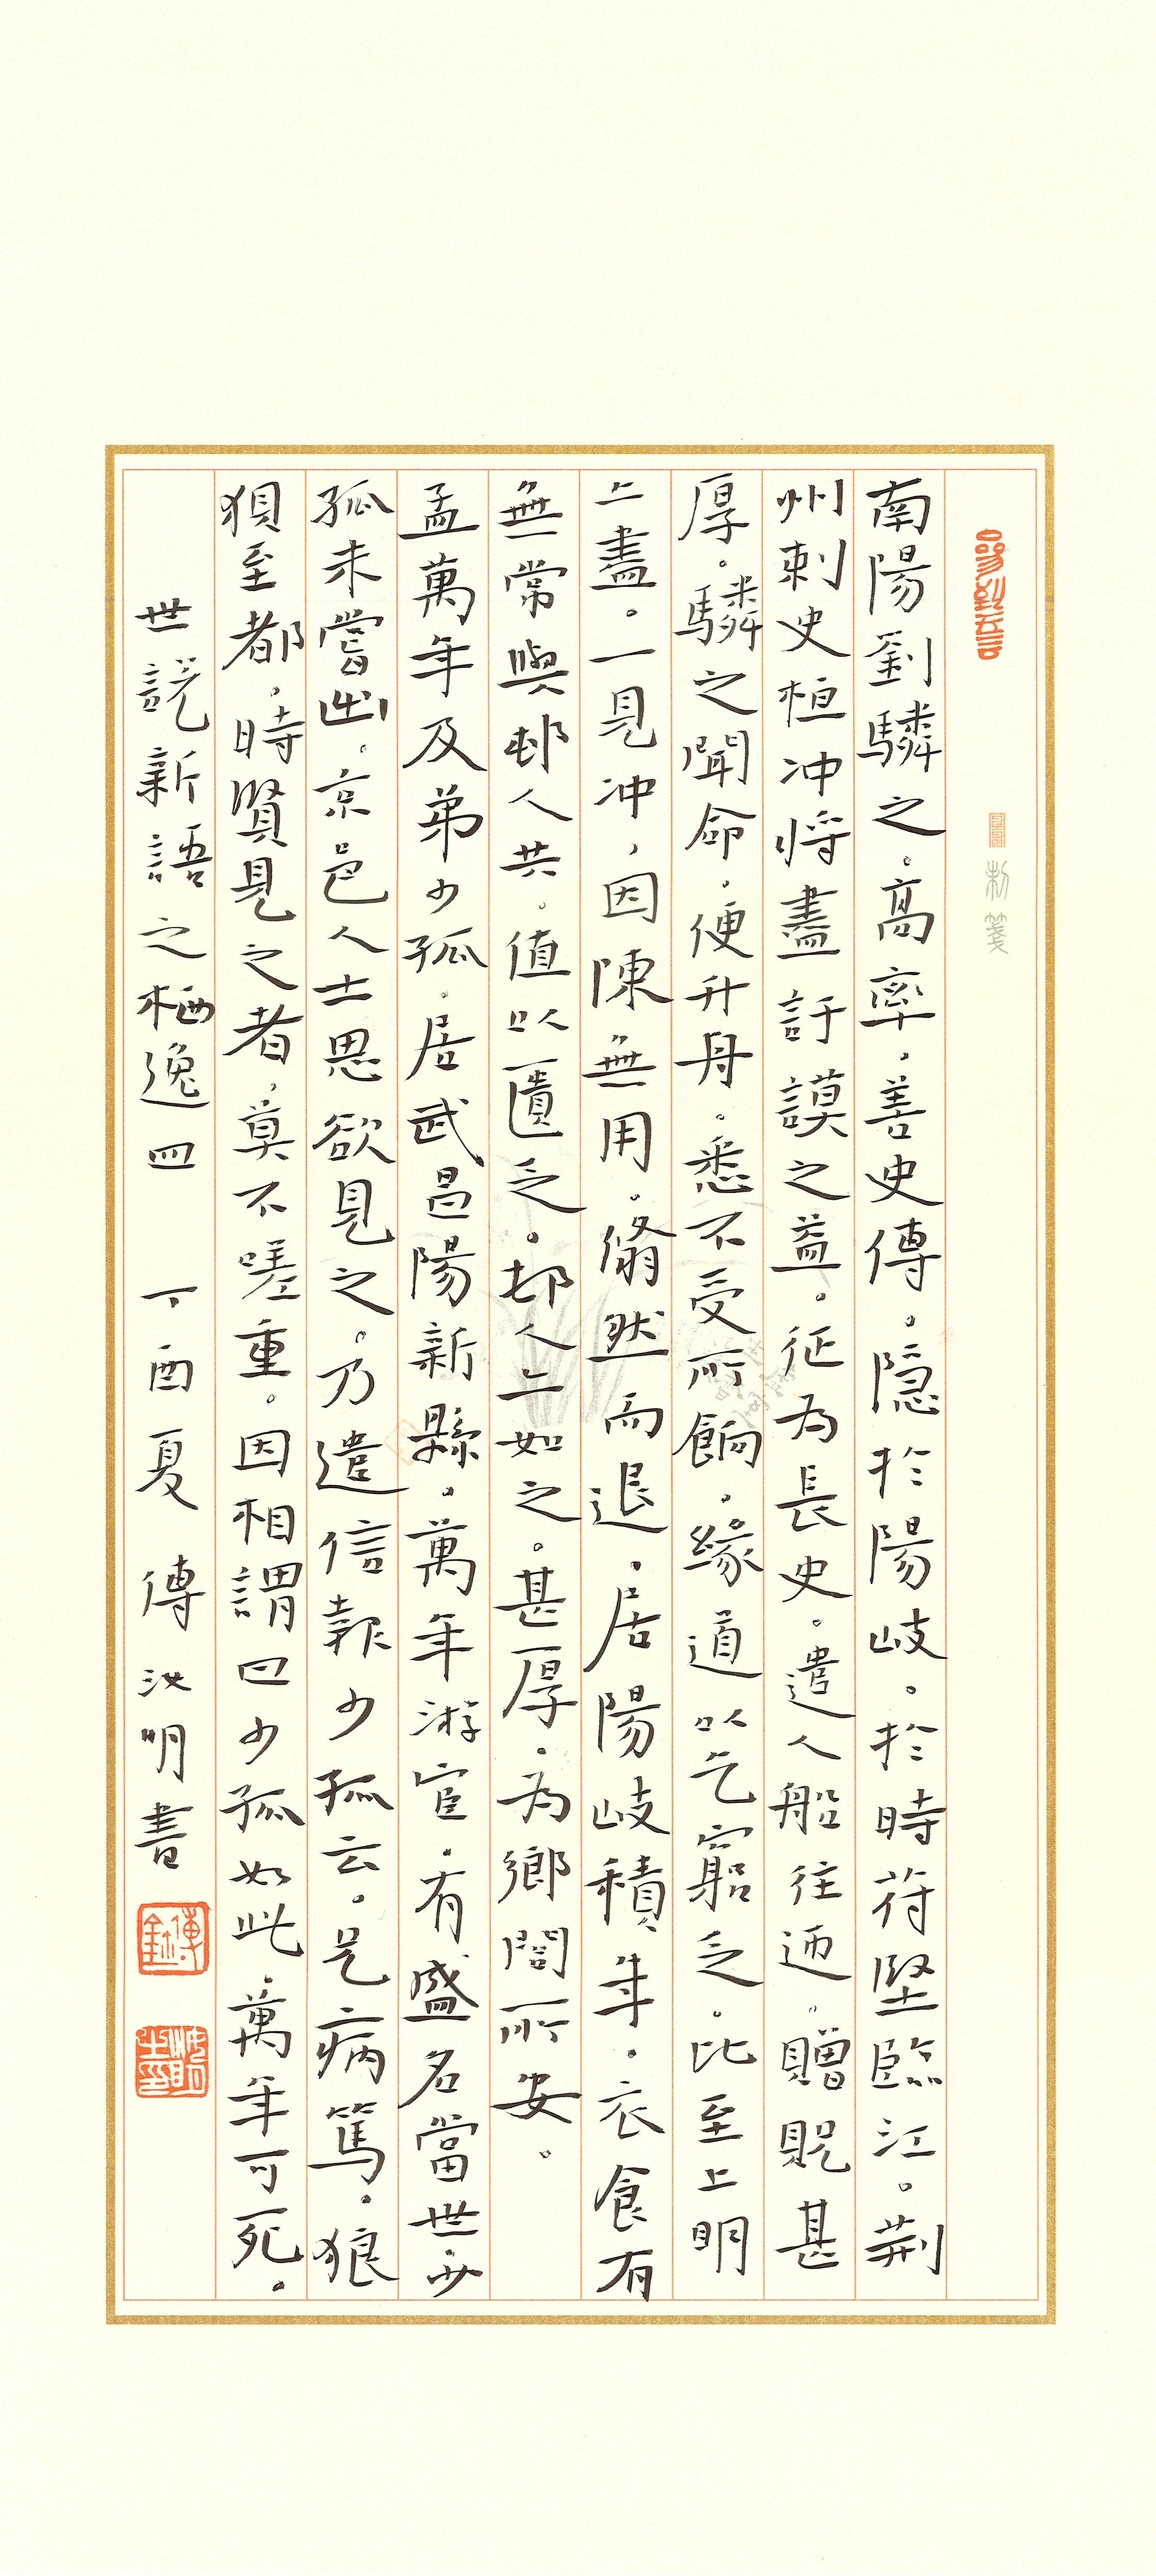 南陽劉驎之。高率，善史傳。隱於陽岐。於時苻堅臨江。荆
州刺史桓冲將盡訏謨之益。征為長史。遣人船往迊。贈貺甚
厚。驎之聞命，便升舟。悉不受所餉，緣道以乞窮乏。比至上明
亠盡。一見冲，因陳無用。翛然而退，居陽岐積年。衣食有
無常與邨人共。值以匱乏。邨人亠如之。甚厚，為鄉閭所安。
孟萬年及弟少孤，居武昌陽新縣，萬年游宦，有盛名當世，少
孤未嘗出。京邑人士思欲見之。乃遣信報少孤云。兄病篤，狼
狽至都，時賢見之者，莫不嗟重。因相謂曰少孤如此，萬年可死。
世說新語之栖逸四 丁酉夏 傅 明書